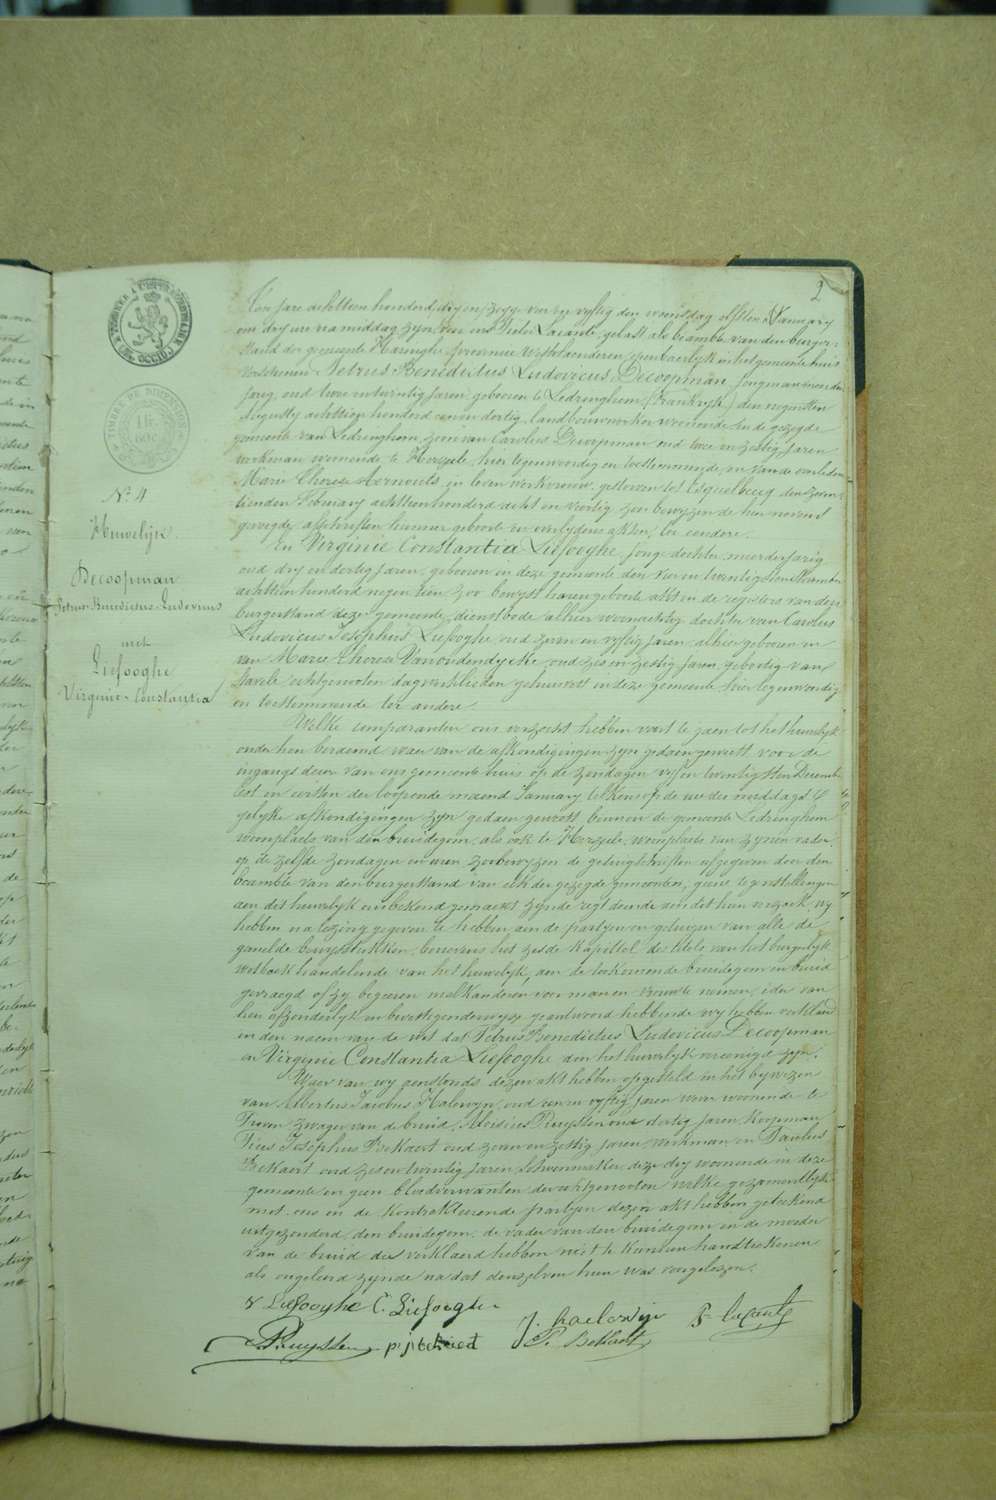 2
N.º 4
Huwelijk
Decoopman
Petrus Benedictus Ludovicus
met
Liefooghe
Virginie Constantia
Ten jare achttien honderd dry en zestig den woensdag elfsten January
om dry ure na middag zyn voor ons Pieter Lacante gelast als beambte van den burger-
stand der gemeente Haringhe provincie Westvlaenderen openbaerlyk in het gemeentehuis
verschenen Petrus Benedictus Ludovicus Decoopman, jongman meerder
jarig, oud twee en twintig jaren geboren te Ledringhem (Frankryk) den negensten
Augusty achttien honderd een en dertig, landbouwwerker wonende in de gezegde
gemeente van Ledringhem, zoon van Carolus Decoopman oud twee en zestig jaren
werkman wonende te Herzeele, hier tegenwoordig en toestemmende, en van de overleden
Marie Therese Aernouts in leven werkvrouw, gestorven tot Esquelbecq den zeven-
tienden February achttien honderd acht en veertig zoo bewyzen de hier nevens
gevoegde afschriften hunner geboorte en overlydens akten, ter eendere.
En Virginie Constantia Liefooghe, jonge dochter, meerderjarig
oud dry en dertig jaren, geboren in deze gemeente den vier en twintigsten
achttien honderd negen tien zoo bewyst haren geboorte akt in de registers van den
burgerstand dezer gemeente, dienstbode alhier woonachtig dochter van Carolus
Ludovicus Josephus Liefooghe oud zeven en vyftig jaren, alhier geboren en
van Marie Therese Vanoudendycke, oud zes en zestig jaren, geboortig van
Stavele echtgenoten dagwerklieden gehuisvest in deze gemeente, hier tegenwoordig
en toestemmende ter andere.
Welke comparanten ons verzocht hebben voort te gaen tot het huwelyk
onder hen beraemd waer van de afkondigingen zyn gedaen geweest voor de
ingangs deur van ons gemeente huis op de zondagen vyf en twintigsten December
lest en eersten der loopende maend January telkens op de ure der middags
gelyke afkondigingen zyn gedaen geweest binnen de gemeente Ledringhem
woonplaets van den bruidegom, als ook te Herzeele, woonplaets van zynen vader
op de zelfde zondagen en uren, zoo bewyzen de getuigschriften afgegeven door den
beambte van den burgerstand van elk der gezegde gemeenten; geene tegenstellingen
aen dit huwelyk ons bekend gemaekt zynde regt doende aen het hun verzoek, wy
hebben na lezing gegeven te hebben aen de partyen en getuigen van alle de
gemelde bewysstukken, benevens het zesde kapittel der titels van het burgerlyk
wetboek handelende van het huwelyk, aen de toekomende bruidegom en bruid
gevraegd of zy begeeren malkanderen voor man en vrouw te nemen, ider van
hen afzonderlyk en bevestigenderwyze geantwoord hebbende wy hebben verklaerd
in den naem van de wet dat Petrus Benedictus Ludovicus Decoopman
en Virginie Constantia Liefooghe door het huwelyk vereenigd zyn.
Waer van wy aenstonds dezen akt hebben opgesteld in het bywezen
van Albertus Jacobus Halewyn, oud zeven en vyftig jaren wever woonende te
zwager van de bruid, Aloisius Ruyssen oud dertig jaren koopman
Pieus Josephus Bekaert oud zeven en zestig jaren, werkman en Paulus
Bekaert oud zes en twintig jaren, schoenmaker deze dry woonende in deze
gemeente en geen bloedverwanten der echtgenooten welke gezamentlyk
met ons en de kontrakterende partyen dezen akt hebben geteekend
uitgezonderd den bruidegom, de vader van den bruidegom en de moeder
van de bruid die verklaerd hebben niet te kunnen handteekenen
als ongeleerd zynde na dat denzelven hun was voorgelezen.
V Liefooghe C. Liefooghe
J. Haelewijn P. Lacante
Ruyssen P. Bekaert